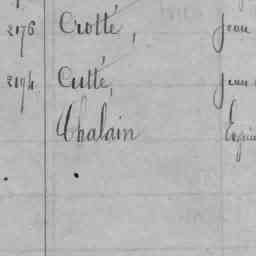 2176 Crotté, Jean
2194 Cutté, Jean
Chalain